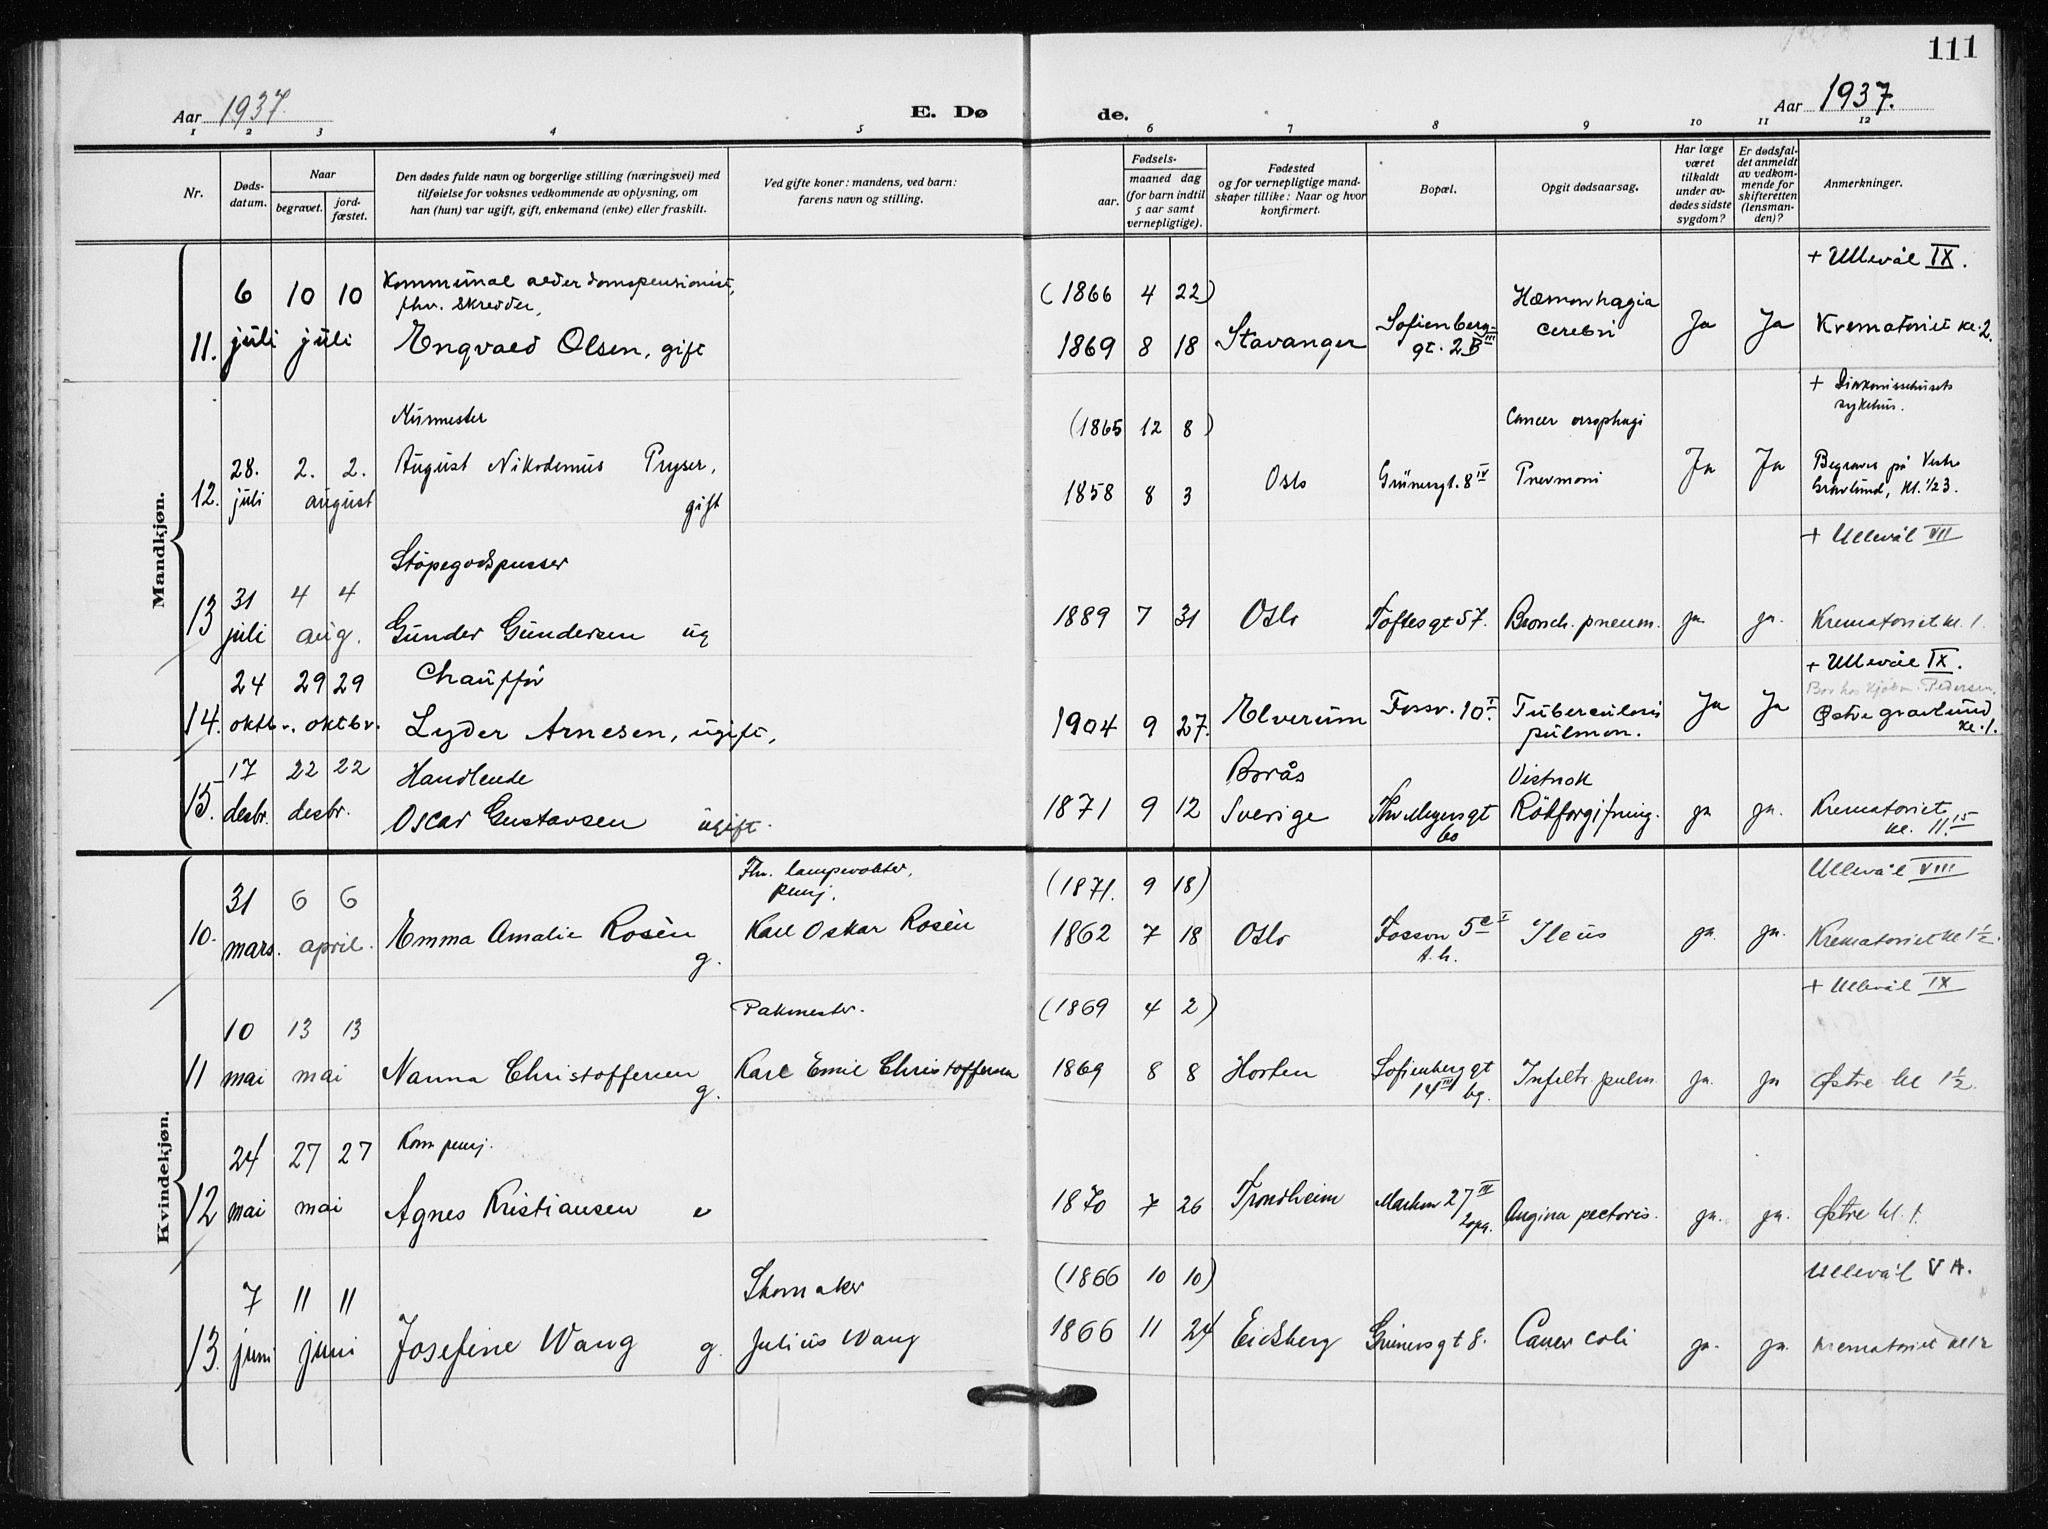 111
Aar 1937.
E. Dø
de.
Aar 1937.
1 2 3 4 5 6 7 8 9 10 11 12
Nr.
Døds-
datum.
Naar
begravet.
jord-
fæstet.
Den dødes fulde navn og borgerlige stilling (næringsvei) med
tilføielse for voksnes vedkommende av oplysning, om
han (hun) var ugift, gift, enkemand (enke) eller fraskilt.
Ved gifte koner: mandens, ved barn:
farens navn og stilling.
Fødsels-
aar.
maaned dag
(for barn indtil
5 aar samt
vernepligtige).
Fødested
og for vernepligtige mand-
skaper tillike: Naar og hvor
konfirmert.
Bopæl.
Opgit dødsaarsag.
Har læge
været
tilkaldt
under av-
dødes sidste
sygdom?
Er dødsfal-
det anmeldt
av vedkom-
mende for
skifteretten
(lensman-
den)?
Anmerkninger.
Mandkjøn.
+ Ullevål IX.
6 10 10 Kommunal alderdomspensionist, (1866 4 22) Hæmorrhagia
fhv. skredder, Sofienberg-
11. juli juli Engvald Olsen, gift 1869 8 18 Stavanger gt. 2B III cerebri Ja Ja Krematoriet kl. 2.
+ Diakonissehusets
sykehus.
Murmester (1865 12 8) Cancer oesophagi
28. 2. 2. August Nikodemus Pryser, Oslo Grünersgt. 8 IV Pnevmoni Ja Ja Begraves på Vestre
12. juli august gift 1858 8 3 Gravlund, kl. 1/2 3.
+ Ullevål VII
Støpegodspusser
31 4 4
13 juli aug. Gunder Gundersen ug 1889 7 31 Oslo Toftesgt 57. Bronch. pneum. ja. ja. Krematoriet kl. 1.
24 29 29 Chauffør + Ullevål IX.
Bor hos Pedersen.
14. oktbr. oktbr. Lyder Arnesen, ugift, 1904 9 27. Elverum Fossv. 10 I. Tuberculosis Ja Ja Østre gravlund
pulmon. kl. 1.
17 22 22 Handlende Borås Vistnok
15. desbr. desbr. Oscar Gustavsen ugift. 1871 9 12 Sverige Thv Meyersgt Røkforgiftning. ja ja. Krematoriet
kl. 11 15
Kvindekjøn.
Fhv. lampevokter, Ullevål VIII
31 6 6 pensj. (1871. 9 18)
10. mars. april. Emma Amalie Rosèn g. Karl Oskar Rosèn 1862 7 18 Oslo Fossvn 5 c I Ileus ja. ja. Krematoriet kl 1 1/2.
t.h.
+ Ullevål IX
Pakmester. (1869 4 2)
10 13 13
11 mai mai Nanna Christoffersen g. Karl Emil Christoffersen 1869 8 8 Horten Sofienberg gt Infiltr. pulm. ja. ja Østre kl 1 1/2.
14 III bg.
24 27 27 Kom pensj.
12 mai mai Agnes Kristiansen e 1870 7 26 Trondheim Markvn 27 IV Angina pectoris. ja. ja. Østre kl. 1.
2 opg.
Ullevål V A.
7 11 11 Skomaker (1866 10 10)
13. juni juni Josefine Wang g. Julius Wang 1866 11 24 Eidsberg Grünersgt 8. Cancer coli ja. ja. Krematoriet kl 12